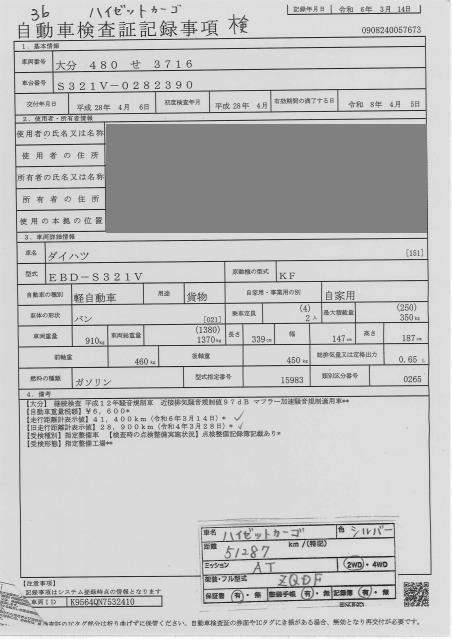 36 ハイゼットカーゴ
記録年月日 令和 6年 3月 14日
自動車検査証記録事項 検
0908240057673
1．基本情報
車両番号 大分 480 せ 3716
車台番号 S321V-0282390
交付年月日 平成 28年 4月 6日 初度検査年月 平成 28年 4月 有効期間の満了する日 令和 8年 4月 5日
2．使用者・所有者情報
使用者の氏名又は名称
使用者の住所
所有者の氏名又は名称
所有者の住所
使用の本拠の位置
3．車両詳細情報
車名 ダイハツ [151]
型式 EBD-S321V 原動機の型式 KF
自動車の種別 軽自動車 用途 貨物 自家用・事業用の別 自家用
車体の形状 バン [021] 乗車定員 (4) 2人 最大積載量 (250) 350kg
車両重量 910kg 車両総重量 (1380) 1370kg 長さ 339cm 幅 147cm 高さ 187cm
前軸重 460kg 後軸重 450kg 総排気量又は定格出力 0.65 L
燃料の種類 ガソリン 型式指定番号 15983 類別区分番号 0265
4．備考
【大分】 継続検査 平成12年騒音規制車 近接排気騒音規制値97dB マフラー加速騒音規制適用車**
【自動車重量税額】¥6,600*
【走行距離計表示値】41,400km（令和6年3月14日）*
【旧走行距離計表示値】28,900km（令和4年3月28日）*
【受検種別】指定整備車 【検査時の点検整備実施状況】点検整備記録簿記載あり*
【受検形態】指定整備工場**
車名 ハイゼットカーゴ 色 シルバー
距離 51287 km/(特記)
ミッション AT 2WD・4WD
荷装・フル型式 ZQDF
保証書 有・無 整備手帳 有・無 記録簿 有・無
【注意事項】
記録事項はシステム登録時点の情報となります
車両ID K9564QN7532410